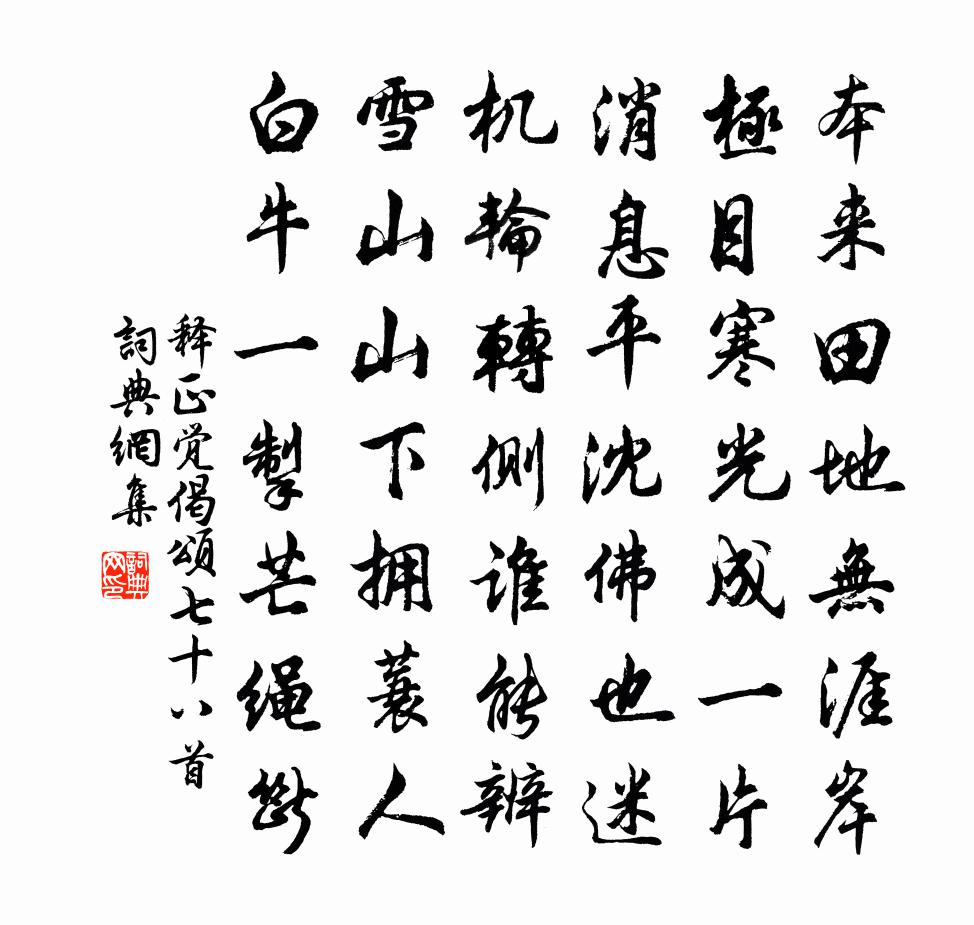 本来田地無涯岸
極目寒光成一片
消息平沈佛也迷
机輪轉側誰能辨
雪山山下拥蓑人
白牛一掣芒绳斷
释正觉偈頌七十八首
詞典網集
詞典網印